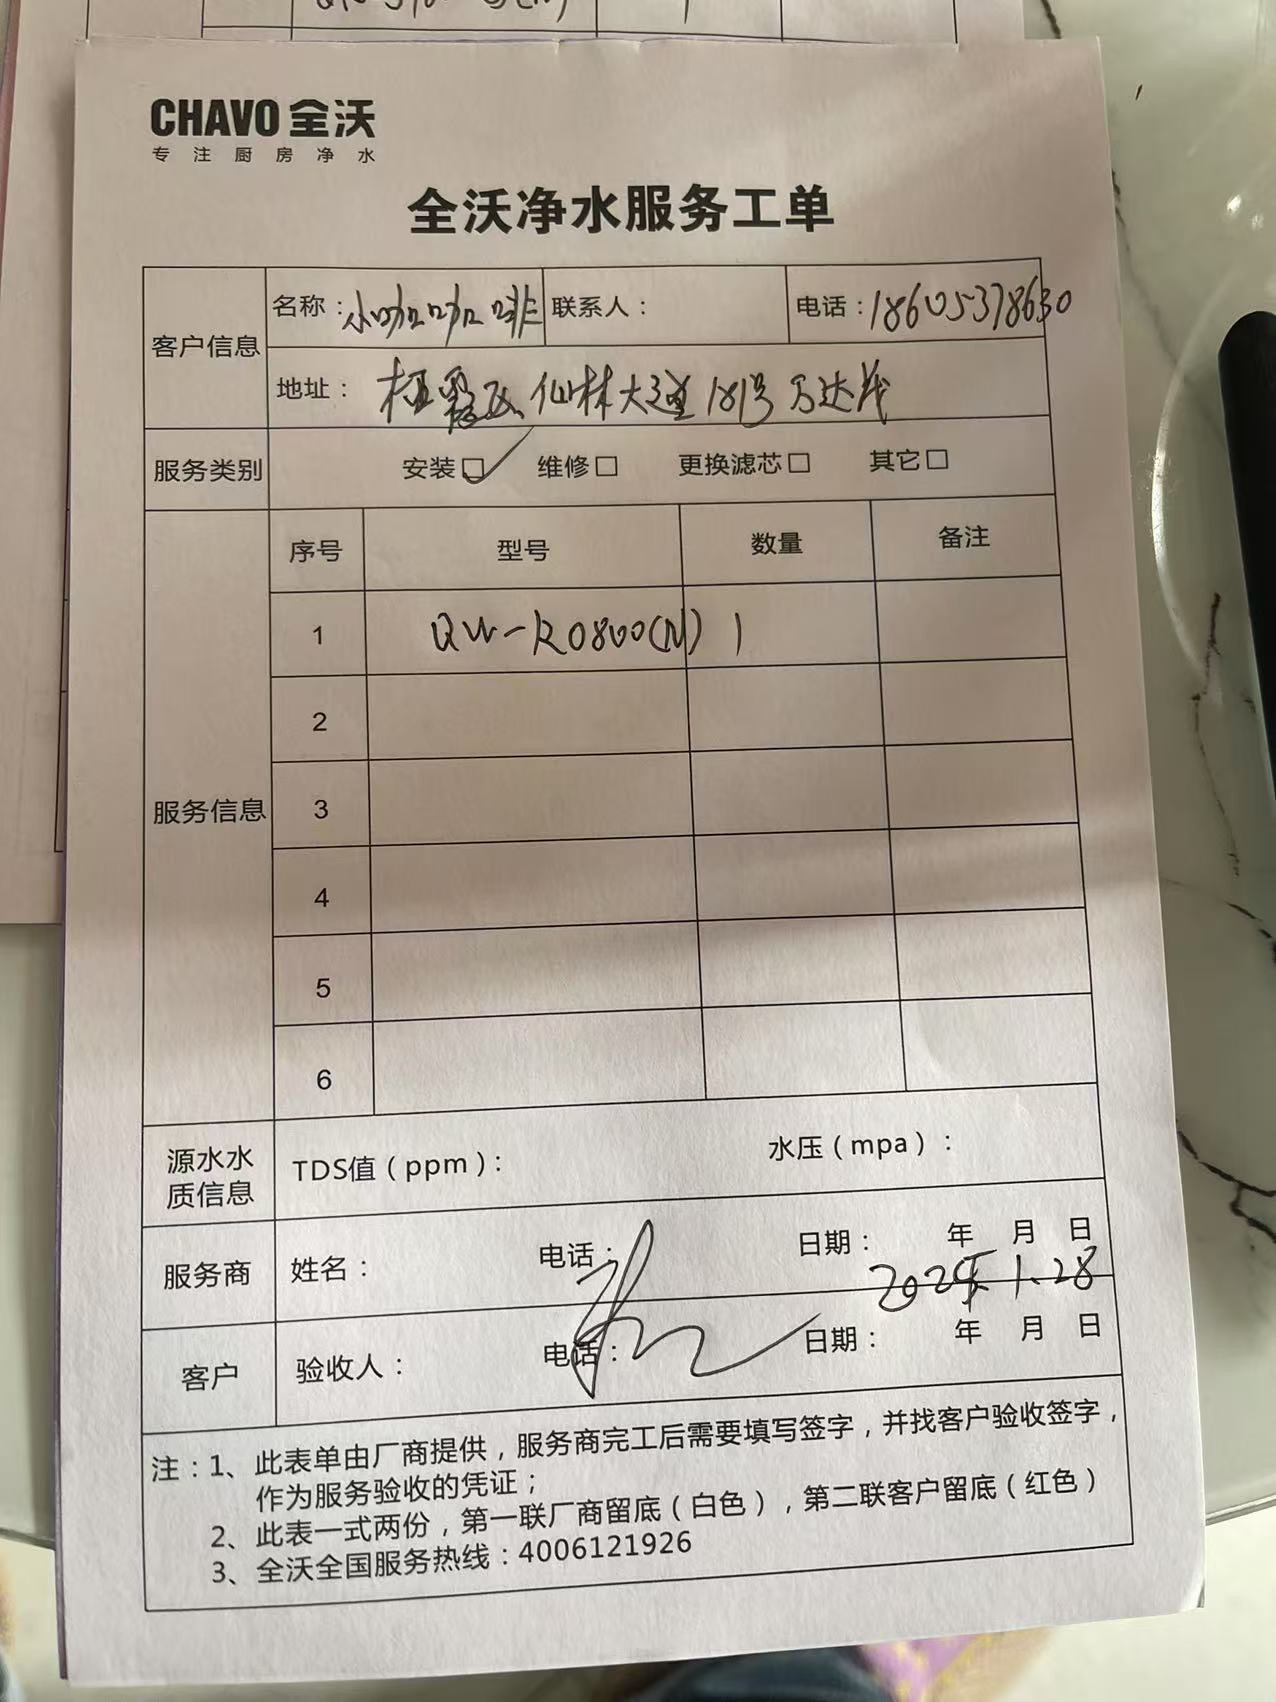 CHAVO 全沃
专注厨房净水
全沃净水服务工单
客户信息
名称：小咖咖啡 联系人： 电话：18605378630
地址：栖霞区仙林大道181号万达茂
服务类别 安装☑ 维修□ 更换滤芯□ 其它□
服务信息
序号 型号 数量 备注
1 QW-RO800(N) 1
2
3
4
5
6
源水水质信息 TDS值（ppm）： 水压（mpa）：
服务商 姓名： 电话： 日期： 年 月 日
1.28
客户 验收人： 电话： 日期： 年 月 日
注：1、此表单由厂商提供，服务商完工后需要填写签字，并找客户验收签字，
作为服务验收的凭证；
2、此表一式两份，第一联厂商留底（白色），第二联客户留底（红色）
3、全沃全国服务热线：4006121926